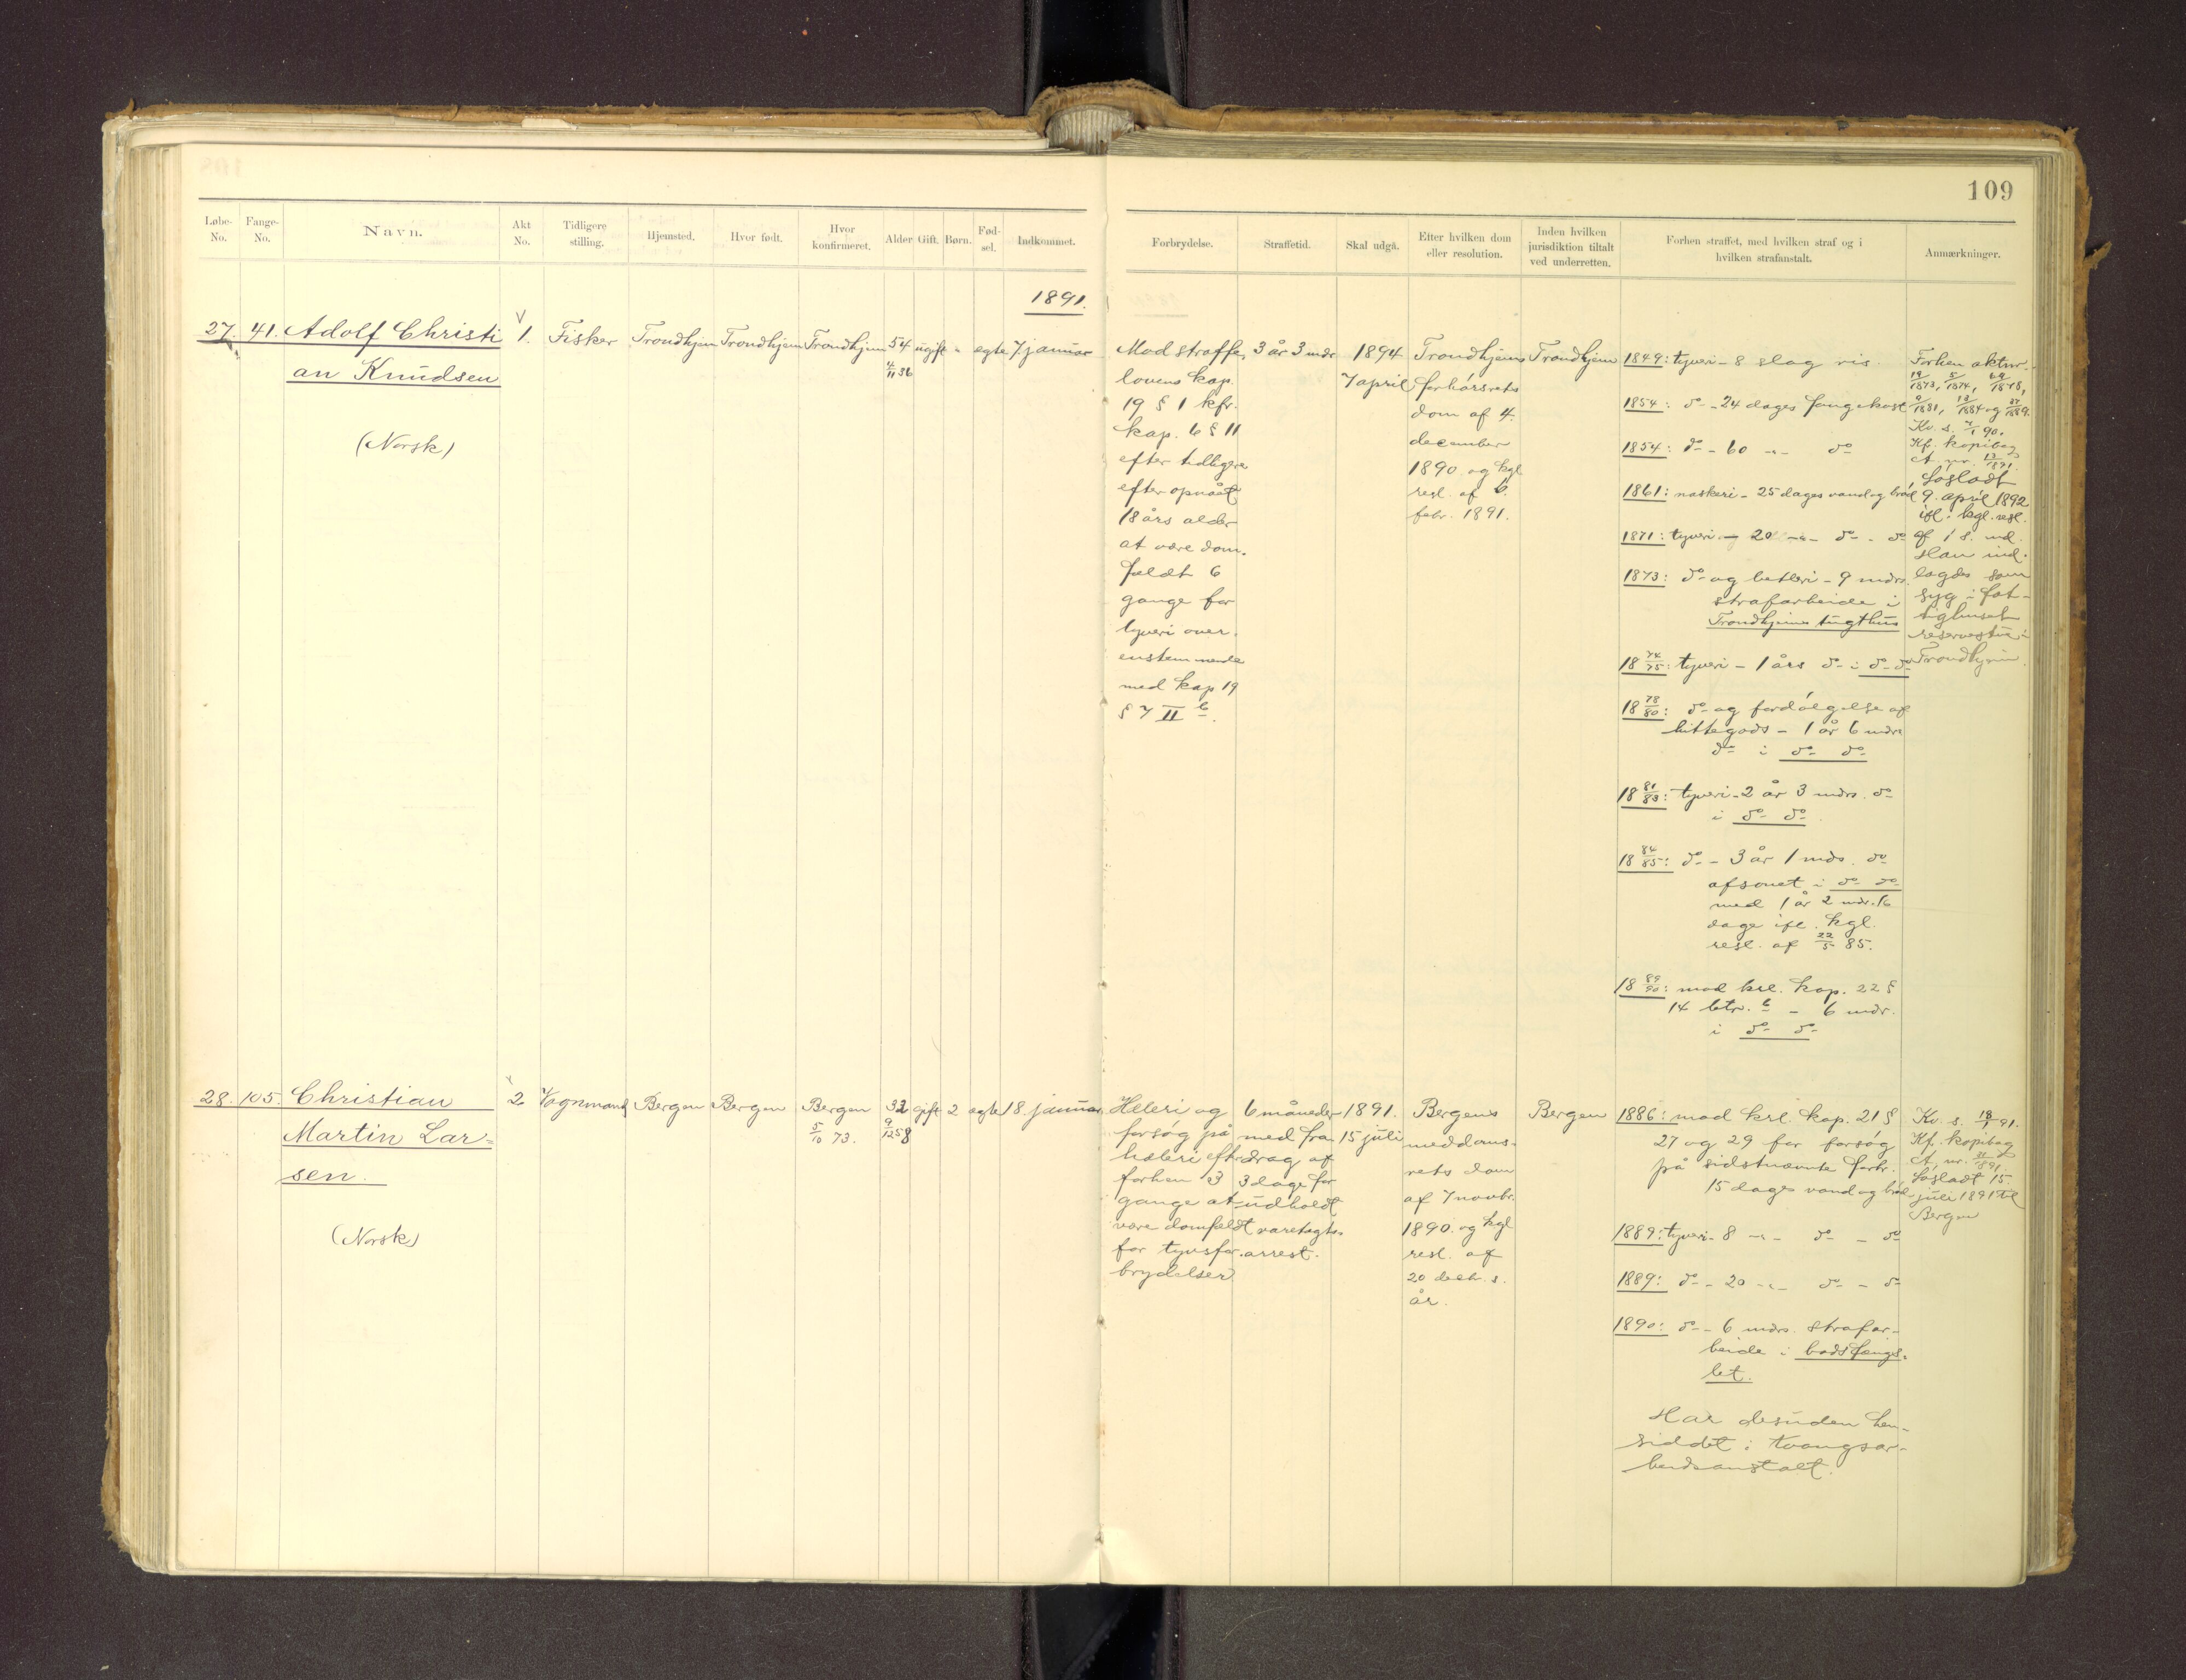 109
Løbe-No.
Fange-No.
Navn.
Akt No.
Tidligere stilling.
Hjemsted.
Hvor født.
Hvor konfirmeret.
Alder
Gift.
Børn.
Fød-sel.
Indkommet.
Forbrydelse.
Straffetid.
Skal udgå.
Efter hvilken dom eller resolution.
Inden hvilken jurisdiktion tiltalt ved underretten.
Forhen straffet, med hvilken straf og i hvilken strafanstalt.
Anmærkninger.
1891.
27.
41.
Adolf Christi
an Knudsen
(Norsk)
1.
Fisker
Trondhjem
Trondhjem
Trondhjem
54
4/11 36
ugift
"
egte
7 januar
Mod straffe
lovens kap.
19 § 1 kfr.
kap. 6 § 11
efter tidligere
efter opnået
18 års alder
at være dom-
fældt 6
gange for
tyveri over-
enstemmende
med kap 19
§ 7 II b.
3 år 3 mdr
1894
7 april
Trondhjems
forhørsrets
dom af 4.
december
1890 og kgl
resl. af 6.
febr. 1891.
Trondhjem
1849: tyveri - 8 slag ris.
1854: do - 24 dages fangekost
1854: do - 60 -"- do
1861: naskeri - 25 dages vand og brød
1871: tyveri - 20 -"- do - do
1873: do og betleri - 9 mdrs.
strafarbeide i
Trondhjems tugthus
18 74/75: tyveri - 1 års do i do do
18 78/80: do og fordølgelse af
hittegods - 1 år 6 mdrs
do i do do
18 81/83: tyveri - 2 år 3 mdrs. do
i do do
18 84/85: do - 3 år 1 mds. do
afsonet i do do
med 1 år 2 mdr. 16
dage ifl. kgl.
resl. af 22/5 85.
18 89/90: mod krl. kap. 22 §
14 litr. b - 6 mdr.
i do do
Forhen aktnr.
19/1873, 5/1874, 69/1878,
9/1881, 13/1884 og 37/1889.
Kv. s. 7/1 90.
Kf. kopibog
A. nr. 13/1891.
Løsladt
9. april 1892
ifl. kgl. resl.
af 1 s. md.
Han ind-
lagdes som
syg i fat-
tighuset
reservestue i
Trondhjem.
28.
105.
Christian
Martin Lar=
sen.
(Norsk)
2
Vognmand
Bergen
Bergen
Bergen
5/10 73.
32
9/12 58
gift
2
egte
18. januar
Heleri og
forsøg på
heleri efter
forhen 3
gange at
være domfældt
for tyvsfor-
brydelser
6 måneder
med fra
drag af
3 dage for
udholdt
varetægts-
arrest.
1891.
15 juli
Bergens
meddoms-
rets dom
af 7 novbr.
1890. og kgl
resl. af
20 decb. s.
år.
Bergen
1886: mod krl. kap. 21 §
27 og 29 for forsøg
på sidstnævnte forbr.
15 dages vand og brød
1889: tyveri - 8 -"- do - do
1889: do - 20 -"- do - do
1890: do - 6 mdrs. strafar-
beide i bodsfængs-
let.
Har desuden hen-
siddet i tvangsar-
beidsanstalt.
Kv. s. 18/1 91.
Kf. kopibog
A. nr. 31/1891.
Løsladt 15.
juli 1891 til
Bergen